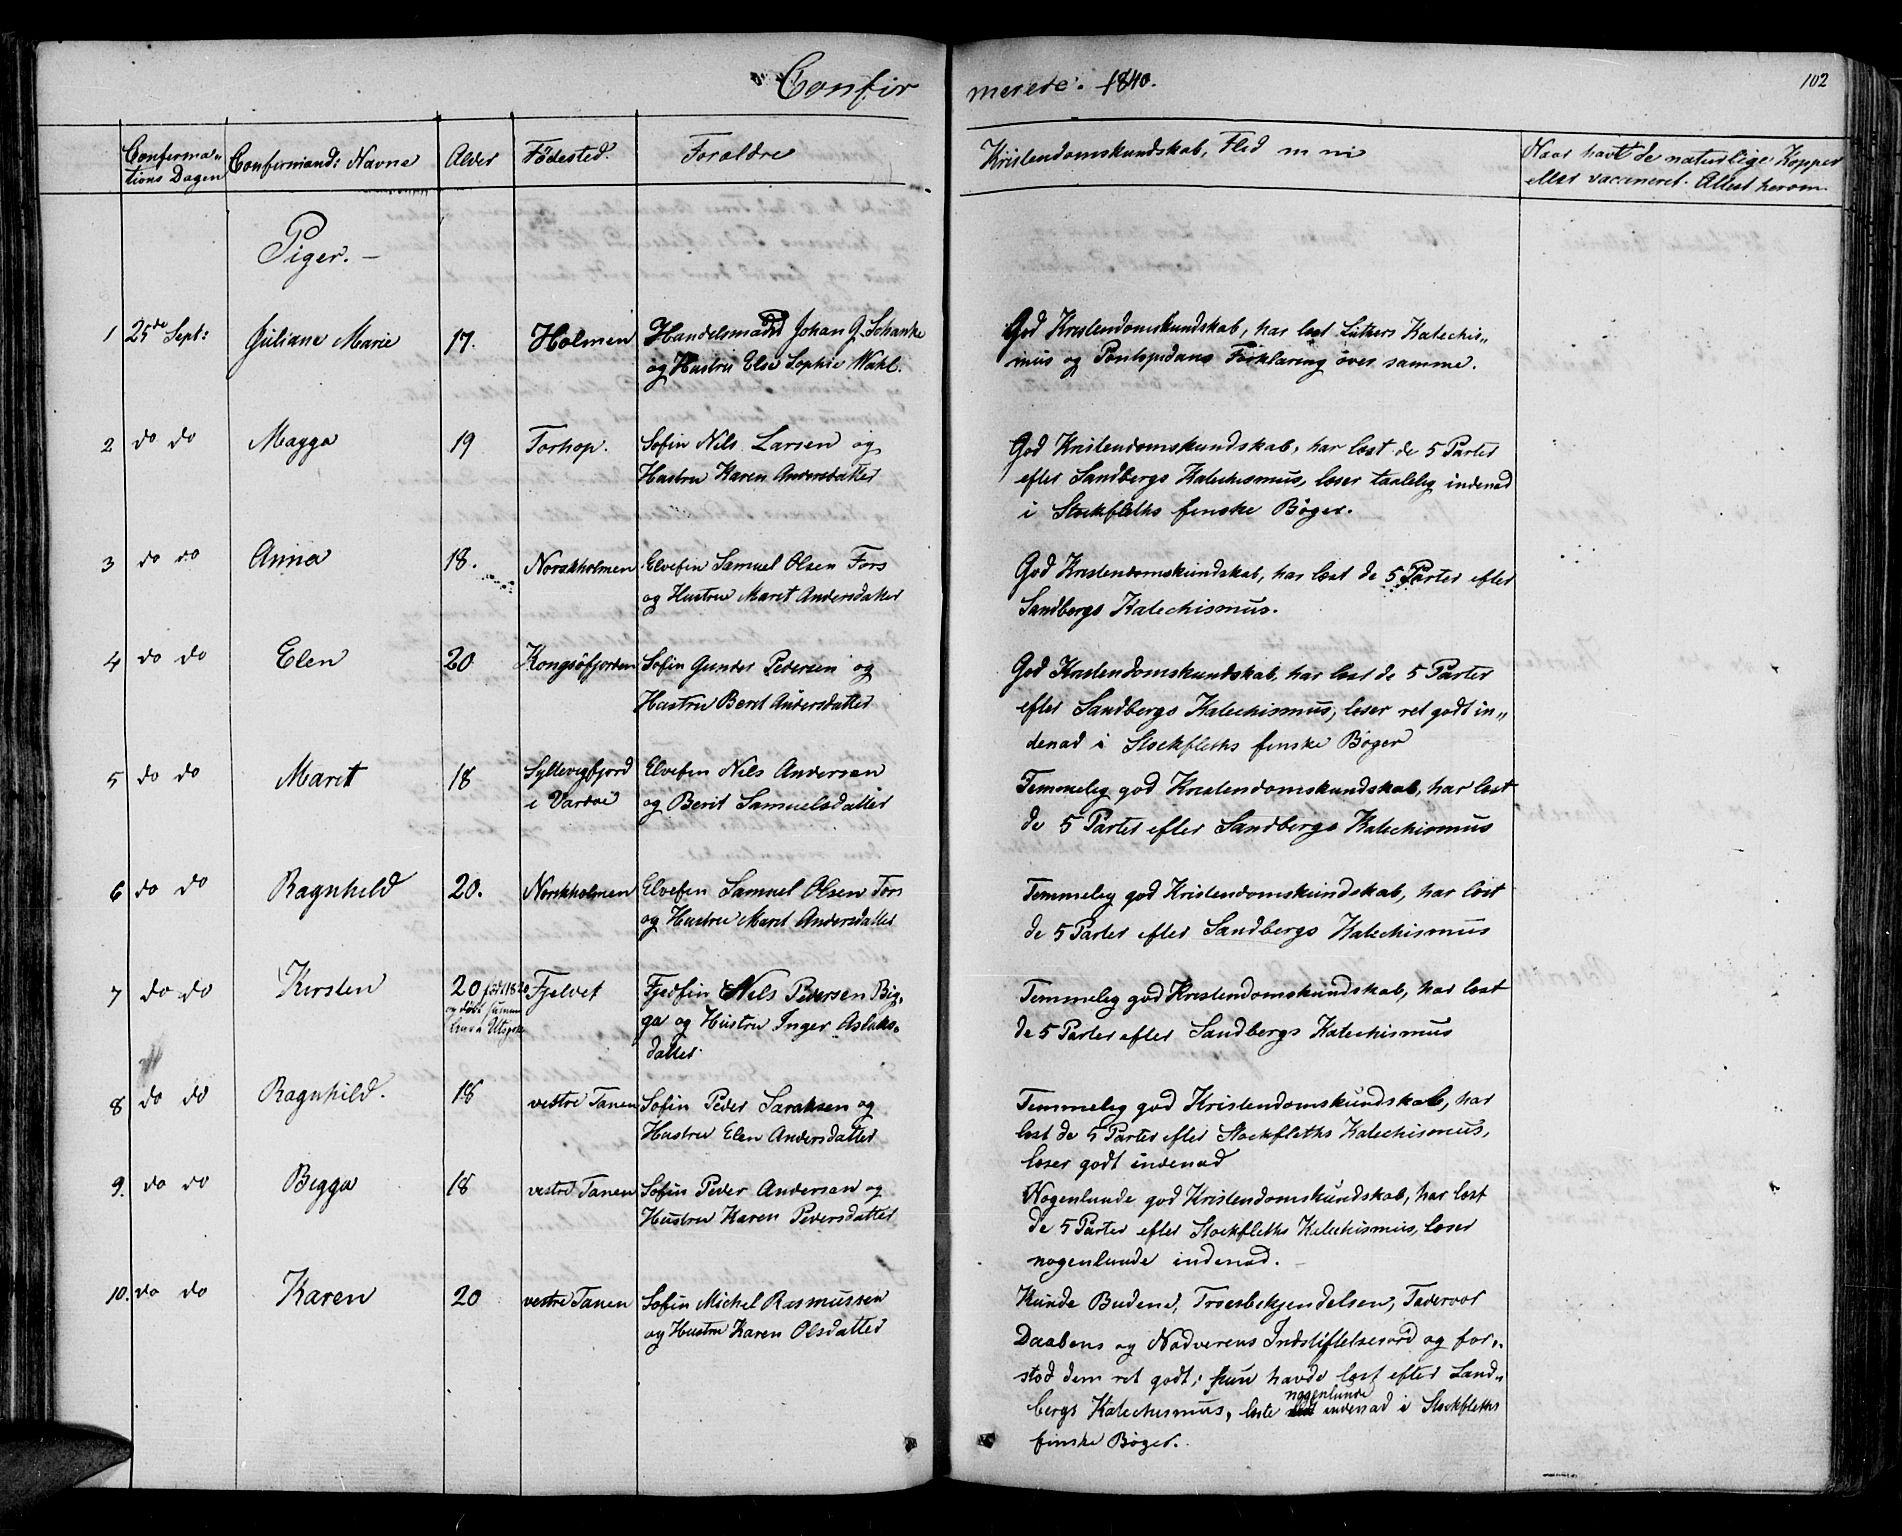 Confirmerede. 1840.
102
Conferma-
tions Dagen
Confermand: Navne
Alder
Fødested.
Forældre
Kristendomskundskab, Flid m m
Naar havt de naturlige Kopper
eller vaccineret. Attest herom
Piger. -
1 25de Sept: Juliane Marie 17. Holmen Handelsmand Johan G. Schanke
og Hustru Else Sophie Wahl.
God Kristendomskundskab, har læst Luthers Katechis-
mus og Pontopidans Forklaring over samme.
2 do do Magga 19 Torhop. Søfin Nils Larsen og
Hustru Karen Andersdatter
God Kristendomskundskab, har læst de 5 Parter
efter Sandbergs Katechismus, læser taalelig indenad
i Stockfleths finske Bøger.
3 do do Anna 18. Norskholmen Elvefin Samuel Olsen Fors
og Hustru Maret Andersdatter
God Kristendomskundskab, har læst de 5 Parter efter
Sandbergs Katechismus.
4 do do Elen 20 Kongsøfjorden Søfin Gunder Pedersen og
Hustru Berit Andersdatter
God Kristendomskundskab, har læst de 5 Parter
efter Sandbergs Katechismus, læser ret godt in-
denad i Stockfleths finske Bøger
5 do do Maret 18 Syltevigfjord
i Vardøe
Elvefin Nils Andersen
og Berit Samuelsdatter
Temmelig god Kristendomskundskab, har læst
de 5 Parter efter Sandbergs Katechismus
6 do do Ragnhild 20. Norskholmen Elvefin Samuel Olsen Fors
og Hustru Maret Andersdatter
Temmelig god Kristendomskundskab, har læst
de 5 Parter efter Sandbergs Katechismus
7 do do Kirsten 20 født 1820
og døbt samme
Fjelvet
Fjelfin Nils Pedersen Big-
ga og Hustru Inger Aslaks-
datter
Temmelig god Kristendomskundskab, har læst
de 5 Parter efter Sandbergs Katechismus
8 do do Ragnhild. 18 vestre Tanen Søfin Peder Saraksen og
Hustru Elen Andersdatter
Temmelig god Kristendomskundskab, har
læst de 5 Parter efter Stockfleths Katechismus,
læser godt indenad
9. do do Bigga 18 vestre Tanen Søfin Peder Andersen og
Hustru Karen Pedersdatter
Nogenlunde god Kristendomskundskab, har læst
de 5 Parter efter Stockfleths Katechismus, læser
nogenlunde indenad.
10. do do Karen 20 vestre Tanen Søfin Michel Rasmussen
og Hustru Karen Olsdatter
Kunde Budene, Troesbekjendelsen, Fadervor
Daabens og Nadverens Indstiftelsesord og for-
stod dem ret godt; hun havde læst efter Sand-
bergs Katechismus, læste nogenlunde indenad i Stockfleths
finske Bøger.